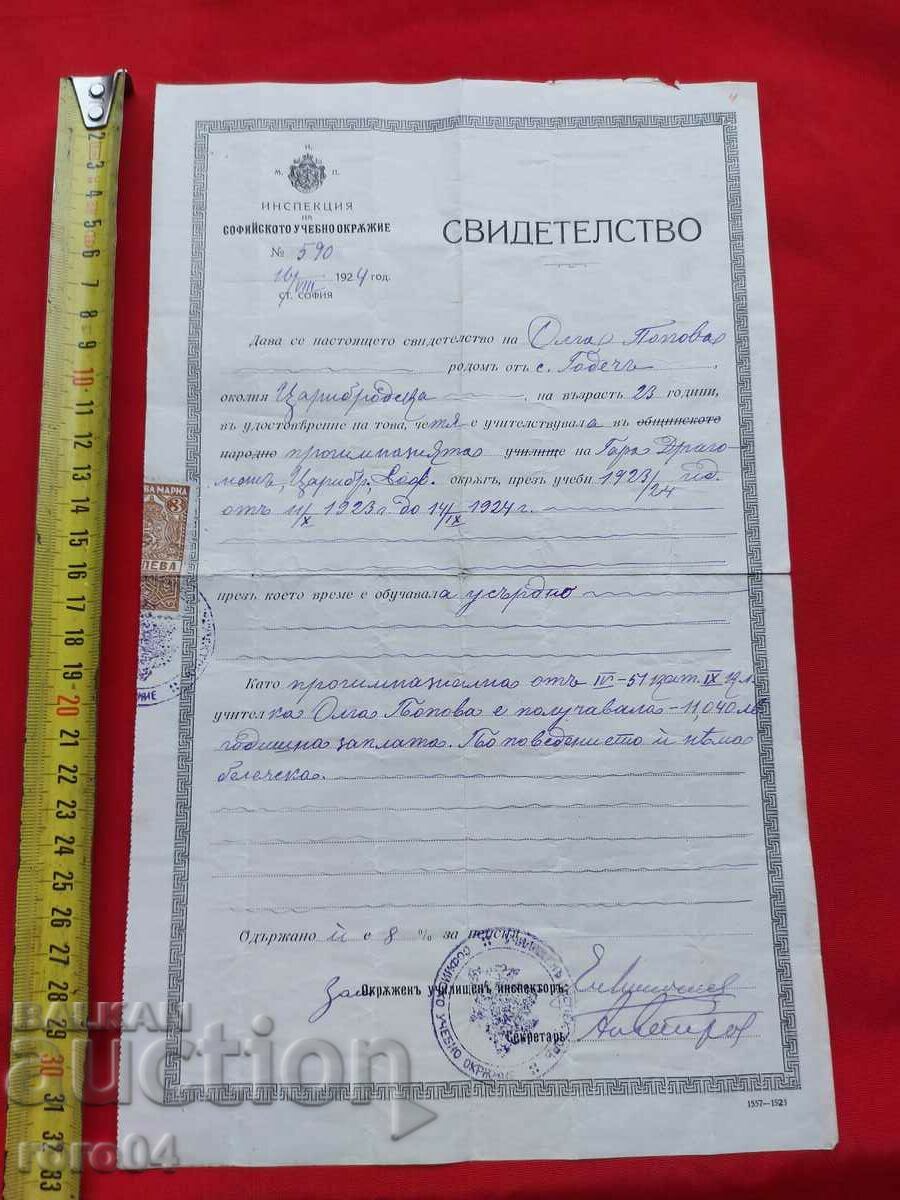 Н.
М. П.
ИНСПЕКЦИЯ
на
СОФИЙСКОТО УЧЕБНО ОКРѪЖИЕ
№ 590
VIII 1924 год.
СТ. СОФИЯ
СВИДЕТЕЛСТВО
Дава се настоящето свидетелство на Олга Попова
родомъ отъ с. Годечъ,
околия Царибродска, на възрасть 23 години,
въ удостовѣрение на това, че тя е учителствувала въ общинското
народно прогимназията училище на Гара Драго-
манъ, Царибр., Соф. окрѫгъ, презъ учебн 1923/24 год.
отъ 11/X 1923 г. до 14/IX 1924 г.
презъ което време е обучавала усърдно
Като прогимназиална отъ IV
учителка Олга Попова е получавала 11,040 лв.
годишна заплата. По поведението ѝ нѣма
бележка.
Одържано ѝ е 8 % за пенсия
Окрѫженъ училищенъ инспекторъ:
Секретарь:
СОФИЙСКО УЧЕБНО ОКРѪЖИЕ
ВА МАРКА
3
ЛЕВА
1557—1923
2 3 4 5 6 7 8 9 10 11 12 13 14 15 16 17 18 19 20 21 22 23 24 25 26 27 28 29 30 31 32 33
BALKAN
auction
roro04